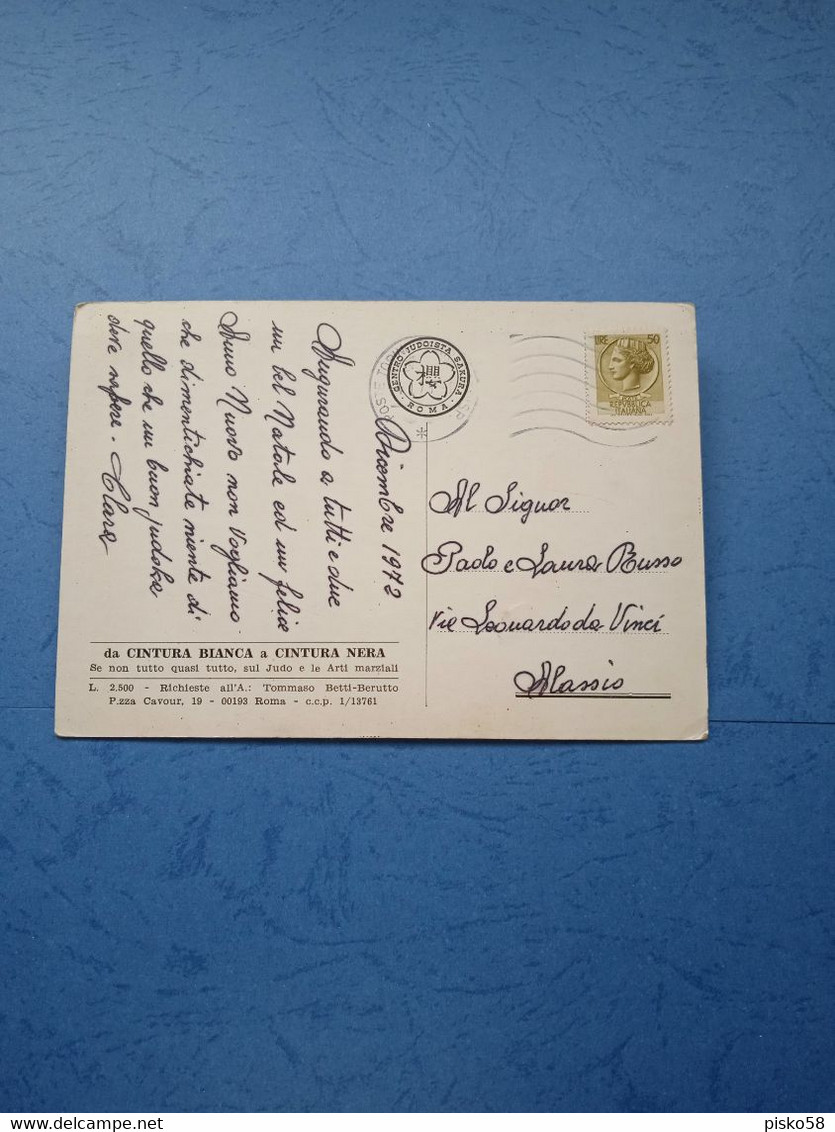 Dicembre 1972
Augurando a tutti e due
un bel Natale ed un felice
Anno Nuovo non Vogliamo
che dimentichiate niente di
quello che un buon judoka
deve sapere. Clara
da CINTURA BIANCA a CINTURA NERA
Se non tutto quasi tutto, sul Judo e le Arti marziali
L. 2.500 - Richieste all'A.: Tommaso Betti-Berutto
P.zza Cavour, 19 - 00193 Roma - c.c.p. 1/13761
CENTRO JUDOISTA SAKURA
櫻
ROMA
LIRE 50
REPVBBLICA
ITALIANA
Al Signor
Paolo e Laura Busso
Vie Leonardo da Vinci
Alassio
delcampe.net
pisko58